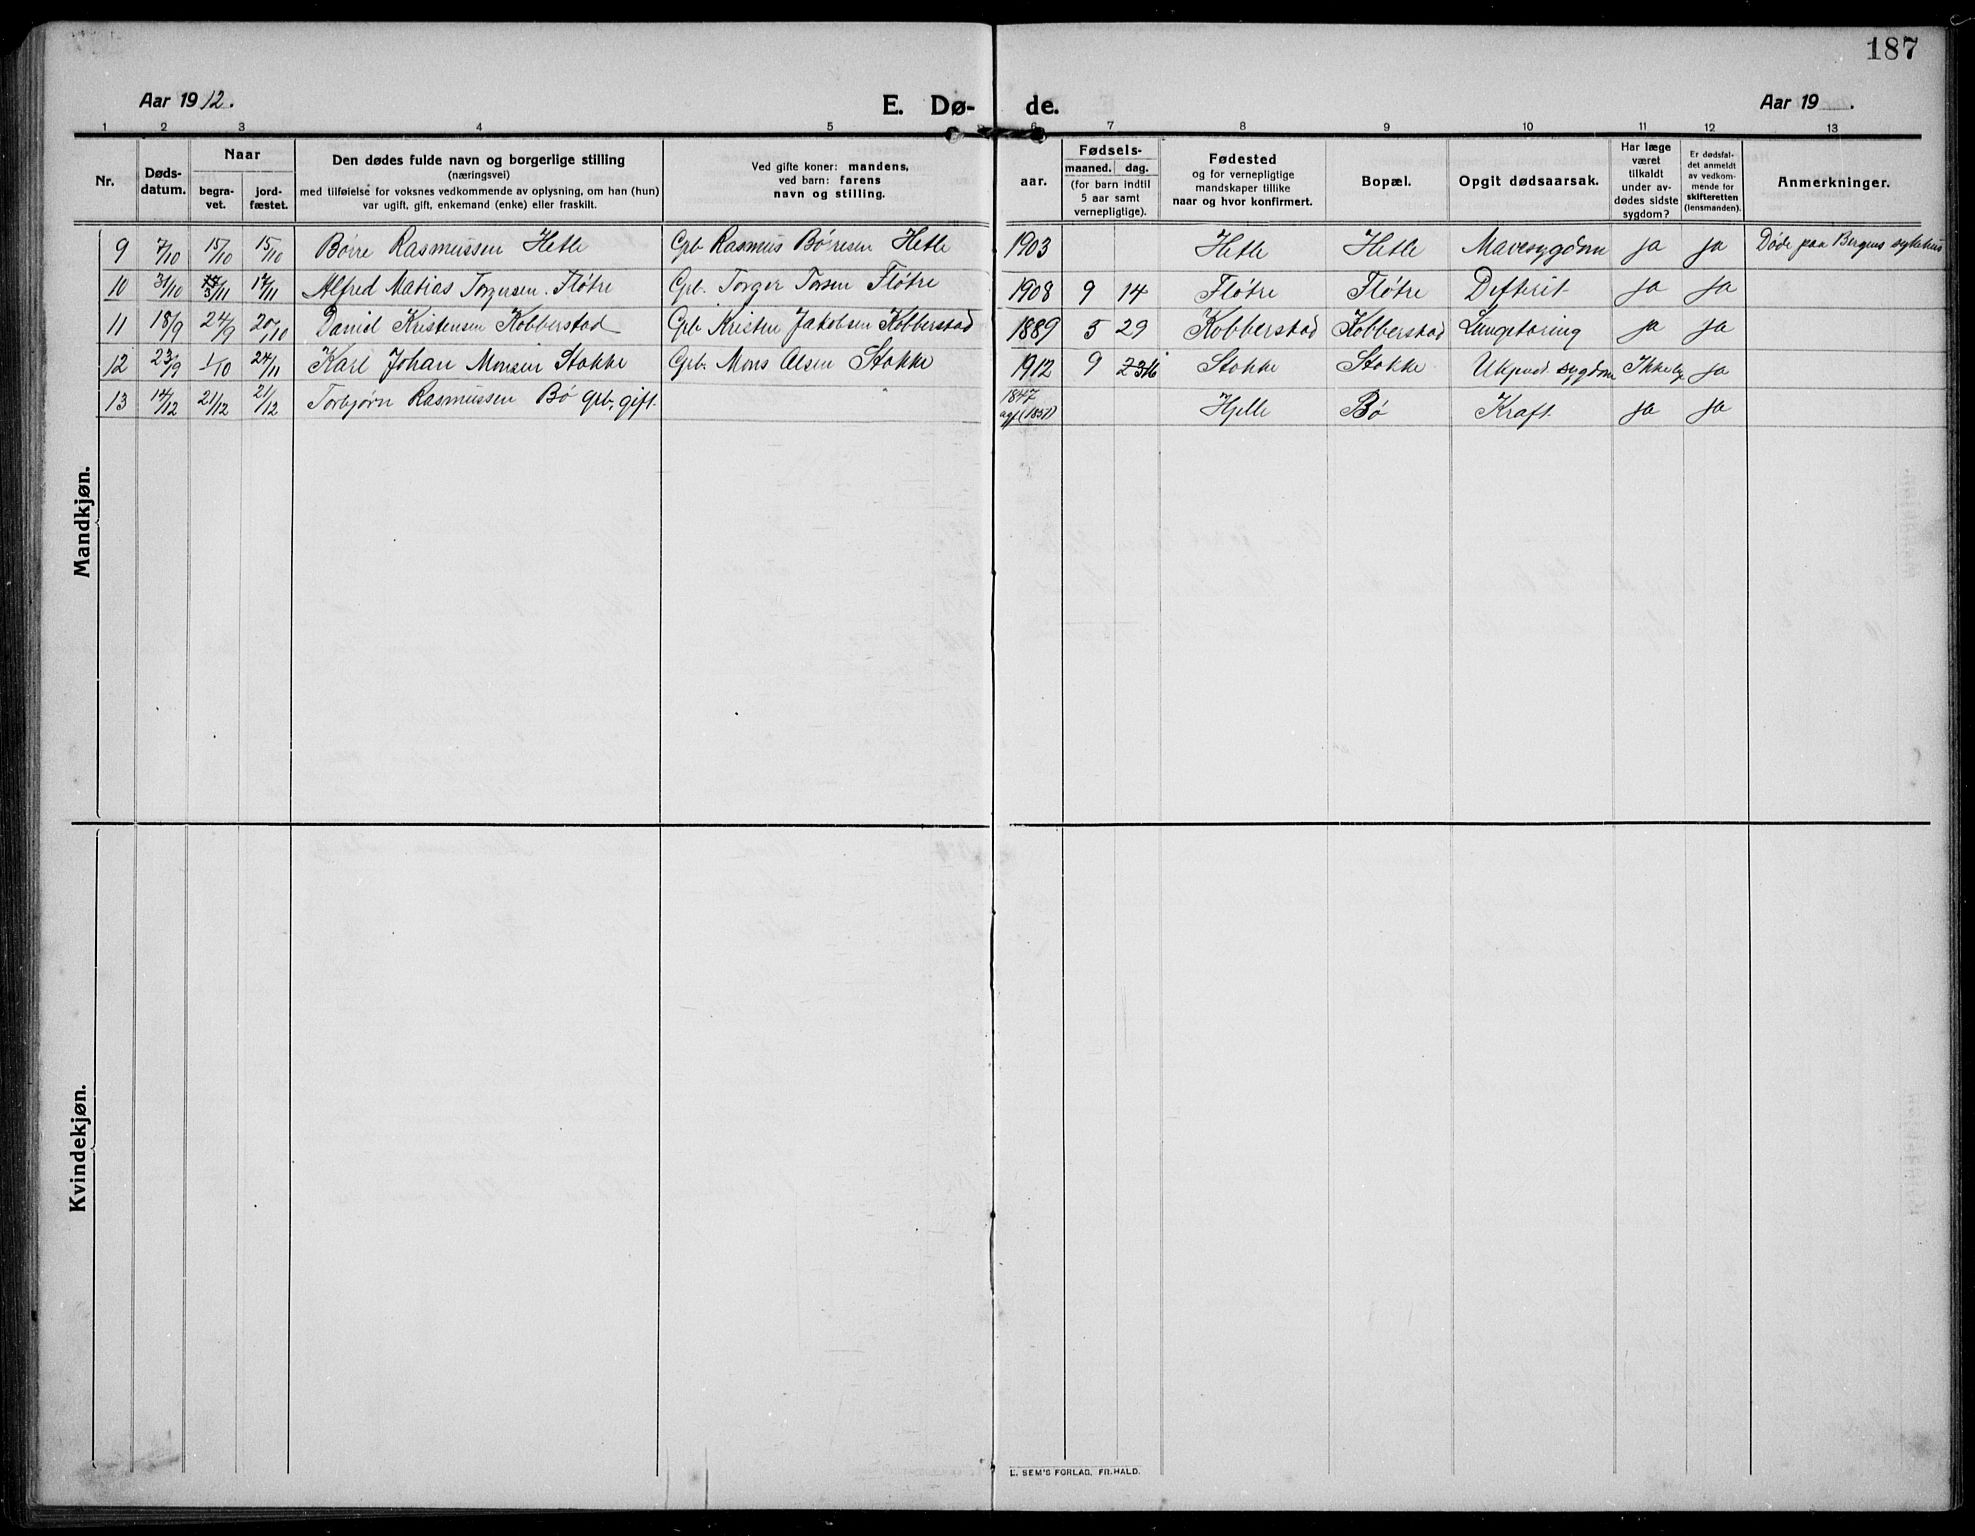 187
Aar 1912.
E. Dø- de.
Aar 19 .
1 2 3 4 5 6 7 8 9 10 11 12 13
Nr.
Døds-
datum.
Naar
begra-
vet.
jord-
fæstet.
Den dødes fulde navn og borgerlige stilling
(næringsvei)
med tilføielse for voksnes vedkommende av oplysning, om han (hun)
var ugift, gift, enkemand (enke) eller fraskilt.
Ved gifte koner: mandens,
ved barn: farens
navn og stilling.
Fødsels-
aar.
maaned. dag.
(for barn indtil
5 aar samt
vernepligtige).
Fødested
og for vernepligtige
mandskaper tillike
naar og hvor konfirmert.
Bopæl.
Opgit dødsaarsak.
Har læge
været
tilkaldt
under av-
dødes sidste
sygdom?
Er dødsfal-
det anmeldt
av vedkom-
mende for
skifteretten
(lensmanden).
Anmerkninger.
9 7/10 15/10 15/10 Børre Rasmussen Hetle Grb Rasmus Børresen Hetle 1903 Hetle Hetle Mavesygdom ja ja Døde paa Bergens sykehus
10 31/10 3/11 17/11 Alfred Matias Torgersen Fløtre Grb. Torger Torsen Fløtre 1908 9 14 Fløtre Fløtre Difterit ja ja
11 18/9 24/9 20/10 Daniel Kristensen Kobberstad Grb Kristen Jakobsen Kobberstad 1889 5 29 Kobberstad Kobberstad Lungetæring ja ja
12 23/9 1/10 24/11 Karl Johan Monsen Stokke Grb. Mons Olsen Stokke 1912 9 Stokke Stokke Ukjendt sygdom Ikke ja
13 14/12 21/12 21/12 Torbjørn Rasmussen Bø grb, gift. 1847 (1851) Hjelle Bø Kræft ja ja
Mandkjøn.
Kvindekjøn.
E. SEM'S FORLAG, FR.HALD.